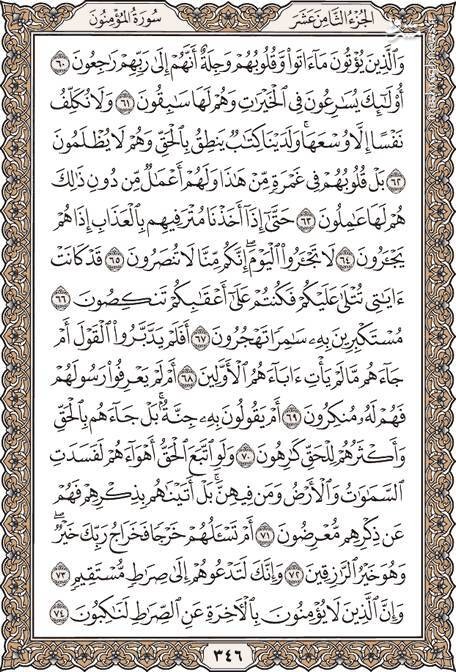 الجزء الثامن عشر
سورة المؤمنون
وَٱلَّذِينَ يُؤْتُونَ مَآ ءَاتَوا۟ وَّقُلُوبُهُمْ وَجِلَةٌ أَنَّهُمْ إِلَىٰ رَبِّهِمْ رَٰجِعُونَ ٦٠
أُو۟لَٰٓئِكَ يُسَٰرِعُونَ فِى ٱلْخَيْرَٰتِ وَهُمْ لَهَا سَٰبِقُونَ ٦١ وَلَا نُكَلِّفُ
نَفْسًا إِلَّا وُسْعَهَا ۖ وَلَدَيْنَا كِتَٰبٌ يَنطِقُ بِٱلْحَقِّ وَهُمْ لَا يُظْلَمُونَ
٦٢ بَلْ قُلُوبُهُمْ فِى غَمْرَةٍ مِّنْ هَٰذَا وَلَهُمْ أَعْمَٰلٌ مِّن دُونِ ذَٰلِكَ
هُمْ لَهَا عَٰمِلُونَ ٦٣ حَتَّىٰٓ إِذَآ أَخَذْنَا مُتْرَفِيهِم بِٱلْعَذَابِ إِذَا هُمْ
يَجْـَٔرُونَ ٦٤ لَا تَجْـَٔرُوا۟ ٱلْيَوْمَ ۖ إِنَّكُم مِّنَّا لَا تُنصَرُونَ ٦٥ قَدْ كَانَتْ
ءَايَٰتِى تُتْلَىٰ عَلَيْكُمْ فَكُنتُمْ عَلَىٰٓ أَعْقَٰبِكُمْ تَنكِصُونَ ٦٦
مُسْتَكْبِرِينَ بِهِۦ سَٰمِرًا تَهْجُرُونَ ٦٧ أَفَلَمْ يَدَّبَّرُوا۟ ٱلْقَوْلَ أَمْ
جَآءَهُم مَّا لَمْ يَأْتِ ءَابَآءَهُمُ ٱلْأَوَّلِينَ ٦٨ أَمْ لَمْ يَعْرِفُوا۟ رَسُولَهُمْ
فَهُمْ لَهُۥ مُنكِرُونَ ٦٩ أَمْ يَقُولُونَ بِهِۦ جِنَّةٌۢ ۚ بَلْ جَآءَهُم بِٱلْحَقِّ
وَأَكْثَرُهُمْ لِلْحَقِّ كَٰرِهُونَ ٧٠ وَلَوِ ٱتَّبَعَ ٱلْحَقُّ أَهْوَآءَهُمْ لَفَسَدَتِ
ٱلسَّمَٰوَٰتُ وَٱلْأَرْضُ وَمَن فِيهِنَّ ۚ بَلْ أَتَيْنَٰهُم بِذِكْرِهِمْ فَهُمْ
عَن ذِكْرِهِم مُّعْرِضُونَ ٧١ أَمْ تَسْـَٔلُهُمْ خَرْجًا فَخَرَاجُ رَبِّكَ خَيْرٌ ۖ
وَهُوَ خَيْرُ ٱلرَّٰزِقِينَ ٧٢ وَإِنَّكَ لَتَدْعُوهُمْ إِلَىٰ صِرَٰطٍ مُّسْتَقِيمٍ ٧٣
وَإِنَّ ٱلَّذِينَ لَا يُؤْمِنُونَ بِٱلْءَاخِرَةِ عَنِ ٱلصِّرَٰطِ لَنَٰكِبُونَ ٧٤
٣٤٦